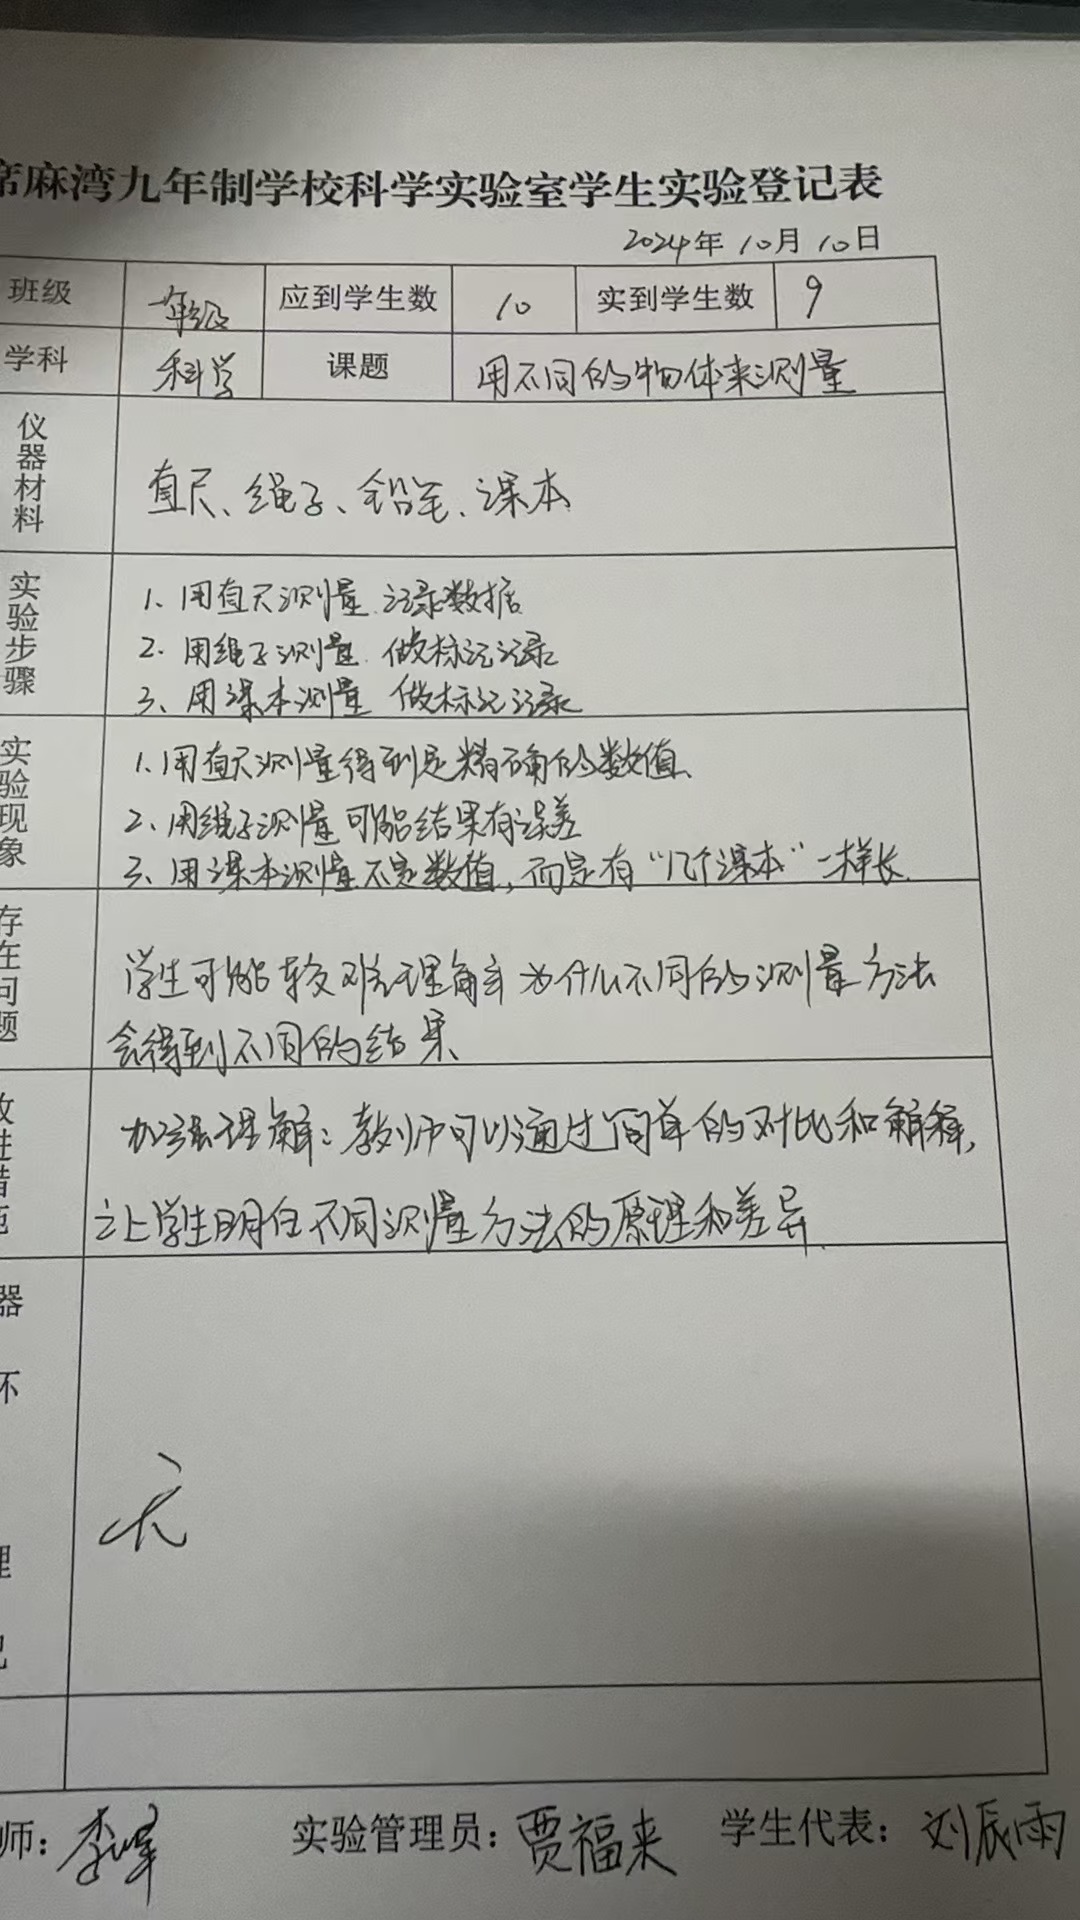 席麻湾九年制学校科学实验室学生实验登记表
2024年 10月 10日
班级 一年级 应到学生数 10 实到学生数 9
学科 科学 课题 用不同的物体来测量
仪器材料 直尺、绳子、铅笔、课本
实验步骤
1、用直尺测量 记录数据
2、用绳子测量 做标记记录
3、用课本测量 做标记记录
实验现象
1、用直尺测量得到是精确的数值、
2、用绳子测量可能结果有误差
3、用课本测量不是数值，而是有“几个课本”一样长.
存在问题
学生可能较难理解为什么不同的测量方法
会得到不同的结果、
改进措施
加强理解：教师可以通过简单的对比和解释，
让学生明白不同测量方法的原理和差异.
器
坏
理
记
无
师：李峰 实验管理员：贾福来 学生代表：刘辰雨